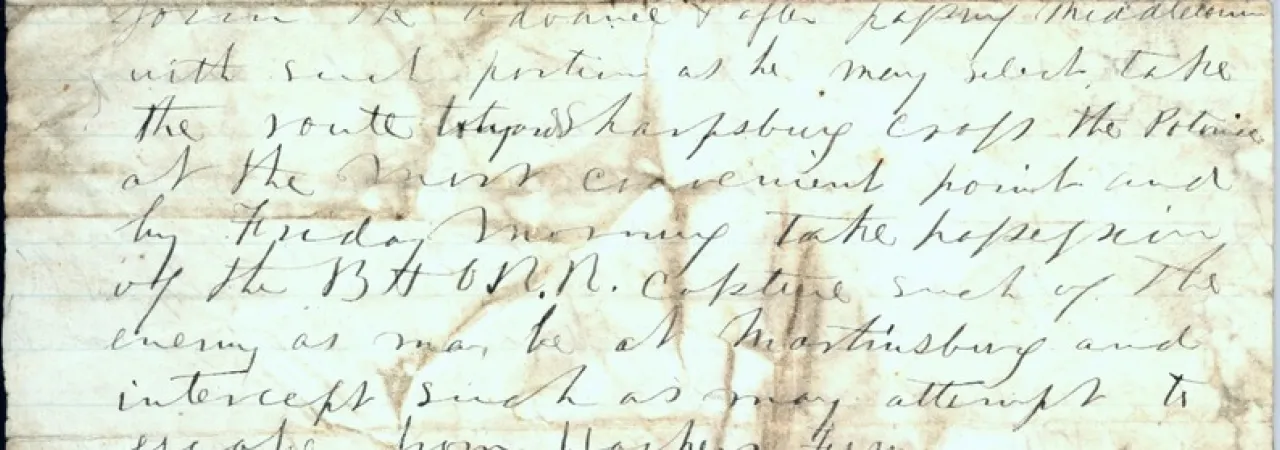 form the advance & after passing Middletown
with such portion as he may select take
the route towards Sharpsburg cross the Potomac
at the most convenient point and
by Friday Morning take possession
of the B & O R.R. capture such of the
enemy as may be at Martinsburg and
intercept such as may attempt to
escape from Harpers Ferry